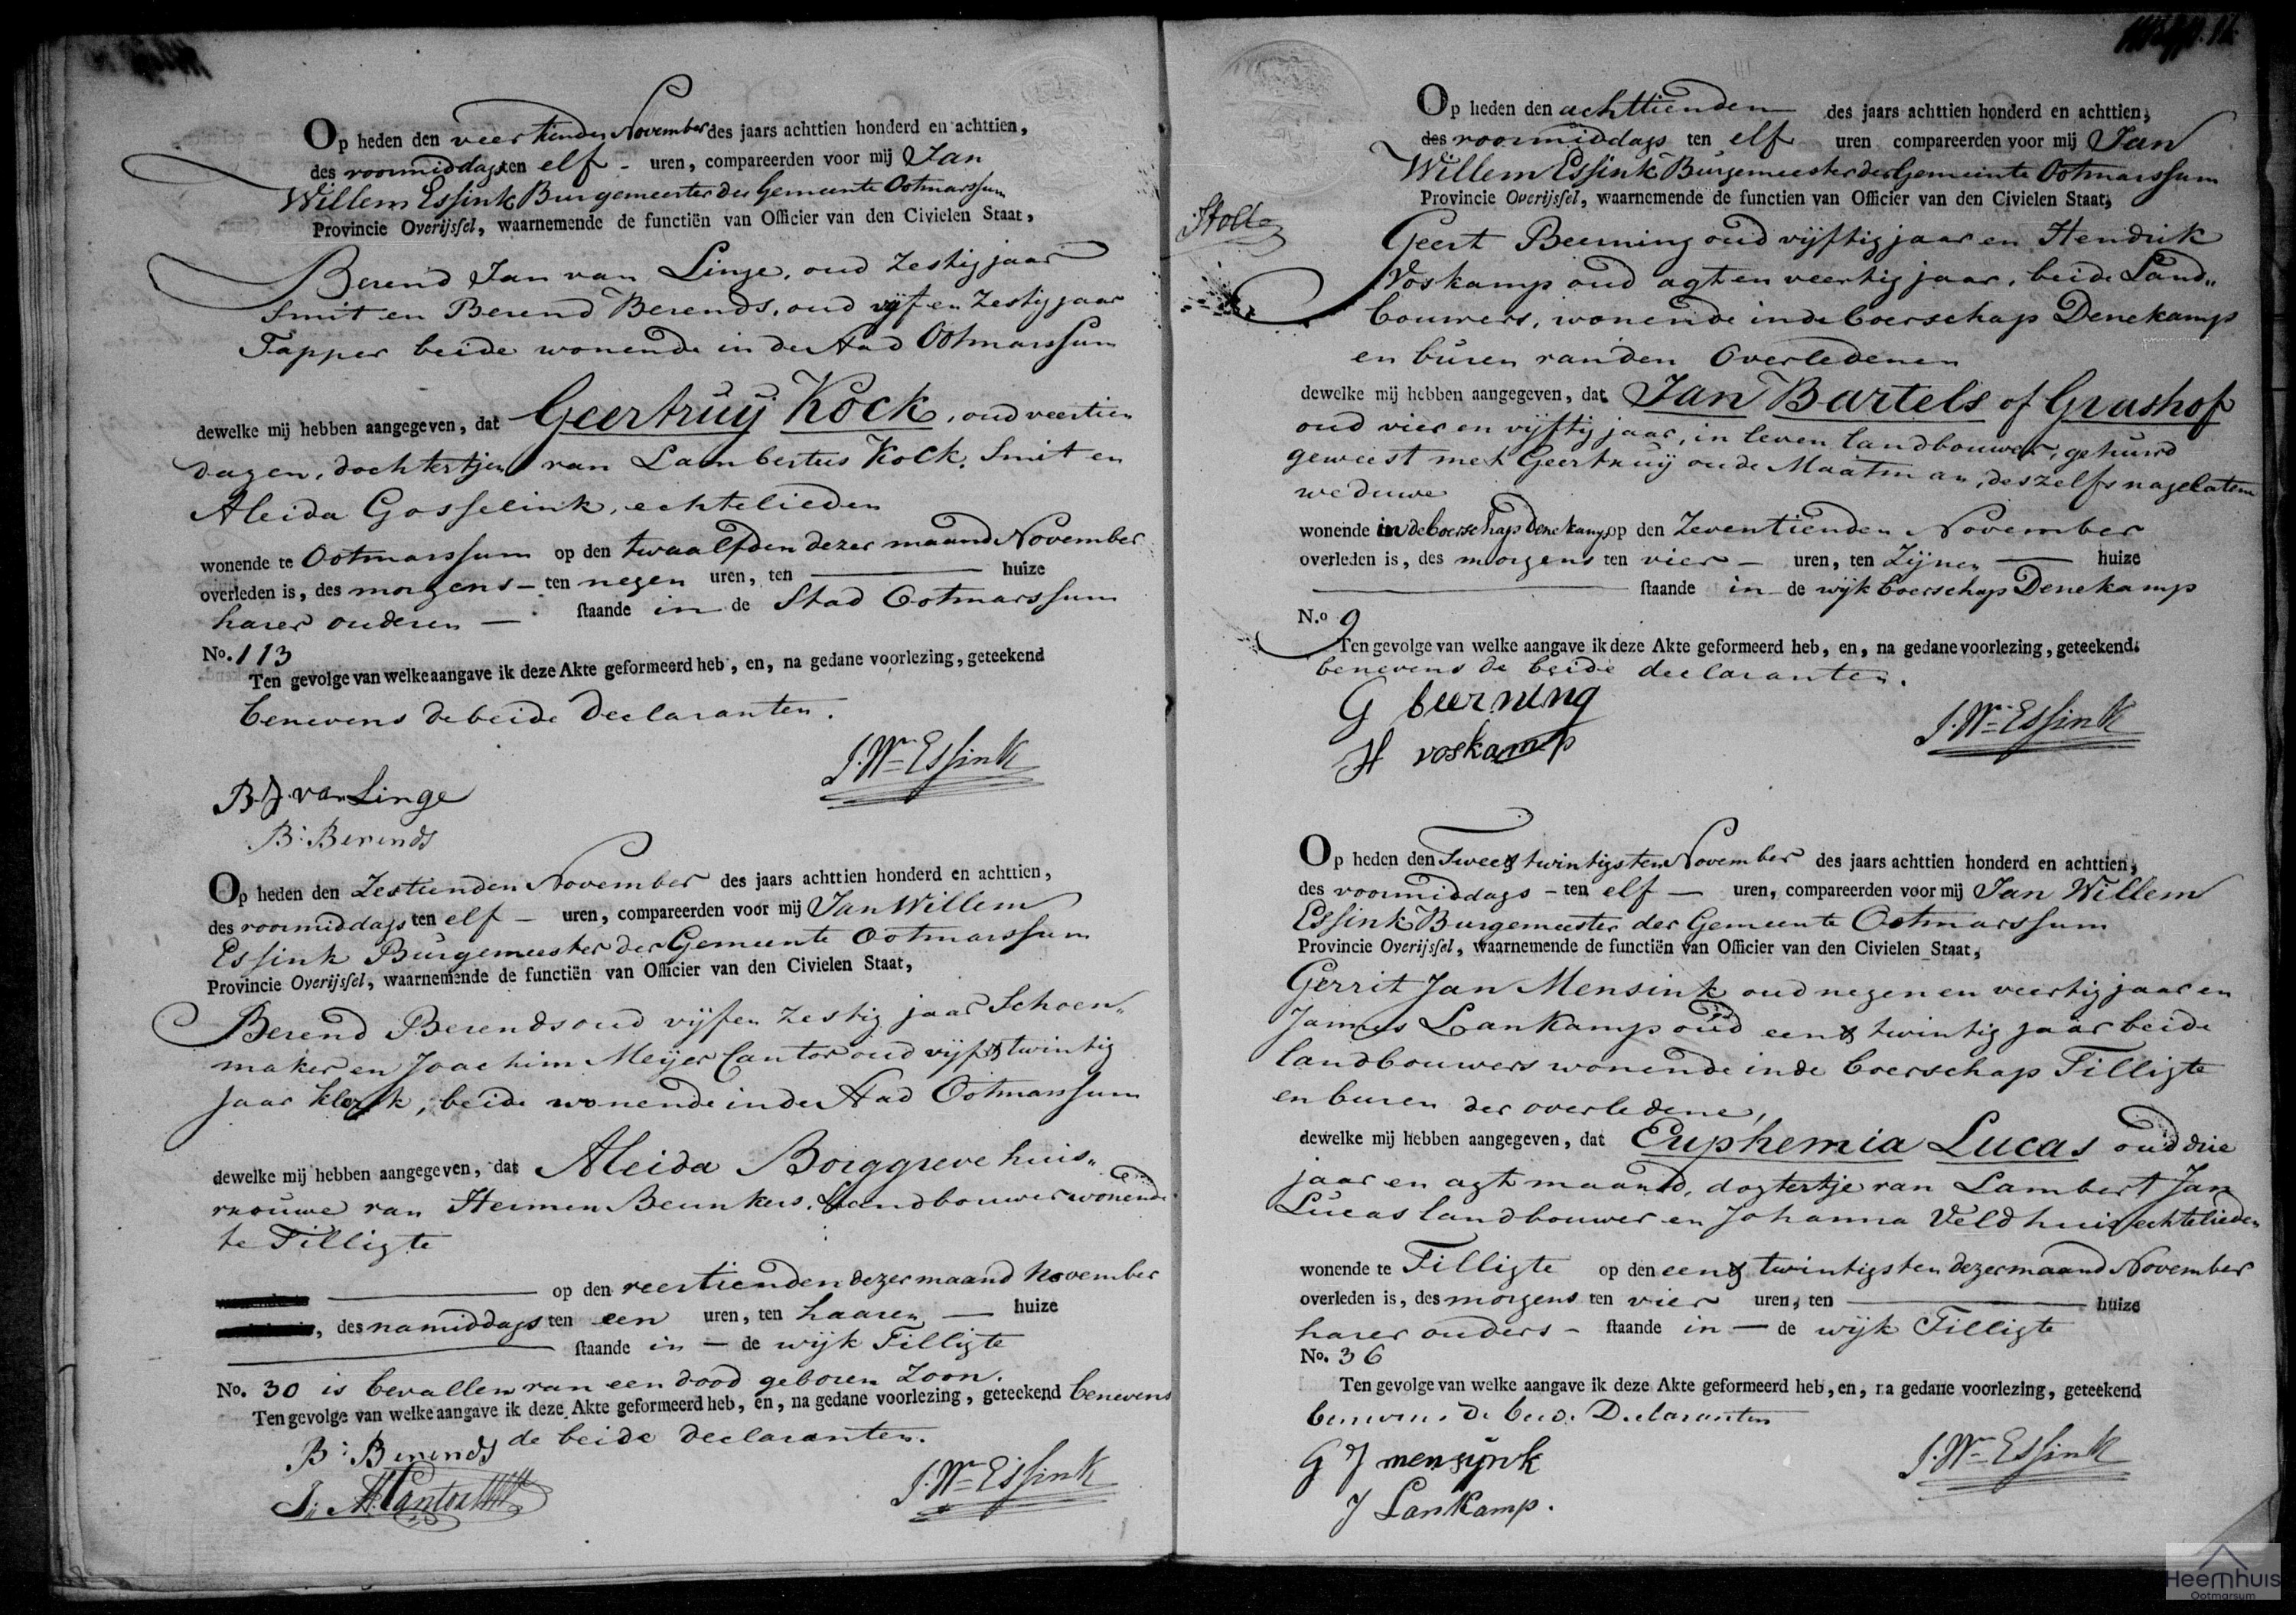 Op heden den veertienden November des jaars achttien honderd en achttien,
des voormiddags ten elf - uren, compareerden voor mij Jan
Willem Essink Burgemeester der Gemeente Ootmarssum
Provincie Overijssel, waarnemende de functiën van Officier van den Civielen Staat,
Berend Jan van Linge, oud Zestig jaar
Smit en Berend Berends, oud vijf en Zestig jaar
Tapper beide wonende in de stad Ootmarssum
dewelke mij hebben aangegeven, dat Geertruij Kock, oud veertien
dagen, dochtertjen van Lambertus Kock, Smit en
Aleida Gosselink, echtelieden
wonende te Ootmarssum op den twaalfden dezer maand November
overleden is, des morgens - ten negen uren, ten huize
harer ouderen - staande in de Stad Ootmarssum
No. 113
Ten gevolge van welke aangave ik deze Akte geformeerd heb, en, na gedane voorlezing, geteekend
benevens de beide Declaranten.
J. Wm Essink
B. J. van Linge
B: Berends
Op heden den Zestienden November des jaars achttien honderd en achttien,
des voormiddags ten elf - uren, compareerden voor mij Jan Willem
Essink Burgemeester der Gemeente Ootmarssum
Provincie Overijssel, waarnemende de functiën van Officier van den Civielen Staat,
Berend Berends oud vijf en Zestig jaar Schoen„
maker en Joachim Meijer Cantor oud vijf & twintig
jaar klerk, beide wonende in de stad Ootmarssum
dewelke mij hebben aangegeven, dat Aleida Borggreve huis„
vrouwe van Hermen Beunkers, Landbouwer wonende
te Tilligte
op den veertienden dezer maand November
, des namiddags ten een uren, ten haaren - huize
staande in - de wijk Tilligte
No. 30 is bevallen van een dood geboren Zoon.
Ten gevolge van welke aangave ik deze Akte geformeerd heb, en, na gedane voorlezing, geteekend benevens
de beide declaranten.
B: Berends
J: M Cantor
J. Wm Essink
Op heden den achttienden des jaars achttien honderd en achttien,
des voormiddags ten elf uren compareerden voor mij Jan
Willem Essink Burgemeester der Gemeinte Ootmarssum
Provincie Overijssel, waarnemende de functien van Officier van den Civielen Staat,
Stolle
Geert Beerning oud vijftig jaar en Hendrik
Voskamp oud agt en veertig jaar, beide Land„
bouwers, wonende in de boerschap Denekamp
en buren van den Overledenen
dewelke mij hebben aangegeven, dat Jan Bartels of Grashof
oud vier en vijftig jaar, in leven landbouwer, gehuwd
geweest met Geertruij oude Maatman, deszelfs nagelaten
weduwe
wonende in de boerschap Denekamp op den Zeventienden November
overleden is, des morgens ten vier - uren, ten Zijnen huize
staande in de wijk boerschap Denekamp
N.o 9
Ten gevolge van welke aangave ik deze Akte geformeerd heb, en, na gedane voorlezing, geteekend.
benevens de beide declaranten.
G beerning
J. Wm Essink
H voskamp
Op heden den Twee & twintigsten November des jaars achttien honderd en achttien,
des voormiddags - ten elf - uren, compareerden voor mij Jan Willem
Essink Burgemeester der Gemeente Ootmarssum
Provincie Overijssel, waarnemende de functiën van Officier van den Civielen Staat,
Gerrit Jan Mensink oud negen en veertig jaar en
Jannes Lankamp oud een & twintig jaar beide
landbouwers wonende in de boerschap Tilligte
en buren der overledene,
dewelke mij hebben aangegeven, dat Euphemia Lucas oud drie
jaar en agt maand, dogtertje van Lambert Jan
Lucas landbouwer en Johanna Veldhuis echtelieden
wonende te Tilligte op den een & twintigsten dezer maand November
overleden is, des morgens ten vier uren, ten huize
harer ouders - staande in - de wijk Tilligte
No. 36
Ten gevolge van welke aangave ik deze Akte geformeerd heb, en, na gedane voorlezing, geteekend
benevens de beide Declaranten
G J mensijnk
J. Wm Essink
J Lankamp.
Heemhuis
Ootmarsum